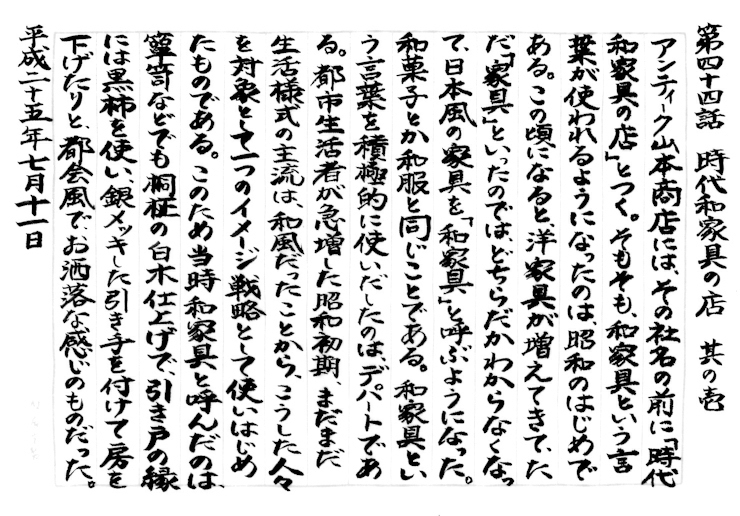 第四十四話　時代和家具の店　其の壱
アンティーク山本商店には、その社名の前に「時代
和家具の店」とつく。そもそも、和家具という言
葉が使われるようになったのは昭和のはじめで
ある。この頃になると、洋家具が増えてきて、た
だ「家具」といったのでは、どちらだかわからなくなっ
て、日本風の家具を「和家具」と呼ぶようになった。
和菓子とか和服と同じことである。和家具とい
う言葉を積極的に使いだしたのは、デパートであ
る。都市生活者が急増した昭和初期、まだまだ
生活様式の主流は、和風だったことから、こうした人々
を対象として一つのイメージ戦略として使いはじめ
たものである。このため当時和家具と呼んだのは、
箪笥などでも桐柾の白木仕上げで、引き戸の縁
には黒柿を使い、銀メッキした引き手を付けて房を
下げたりと、都会風で、お洒落な感じのものだった。
平成二十五年七月十一日